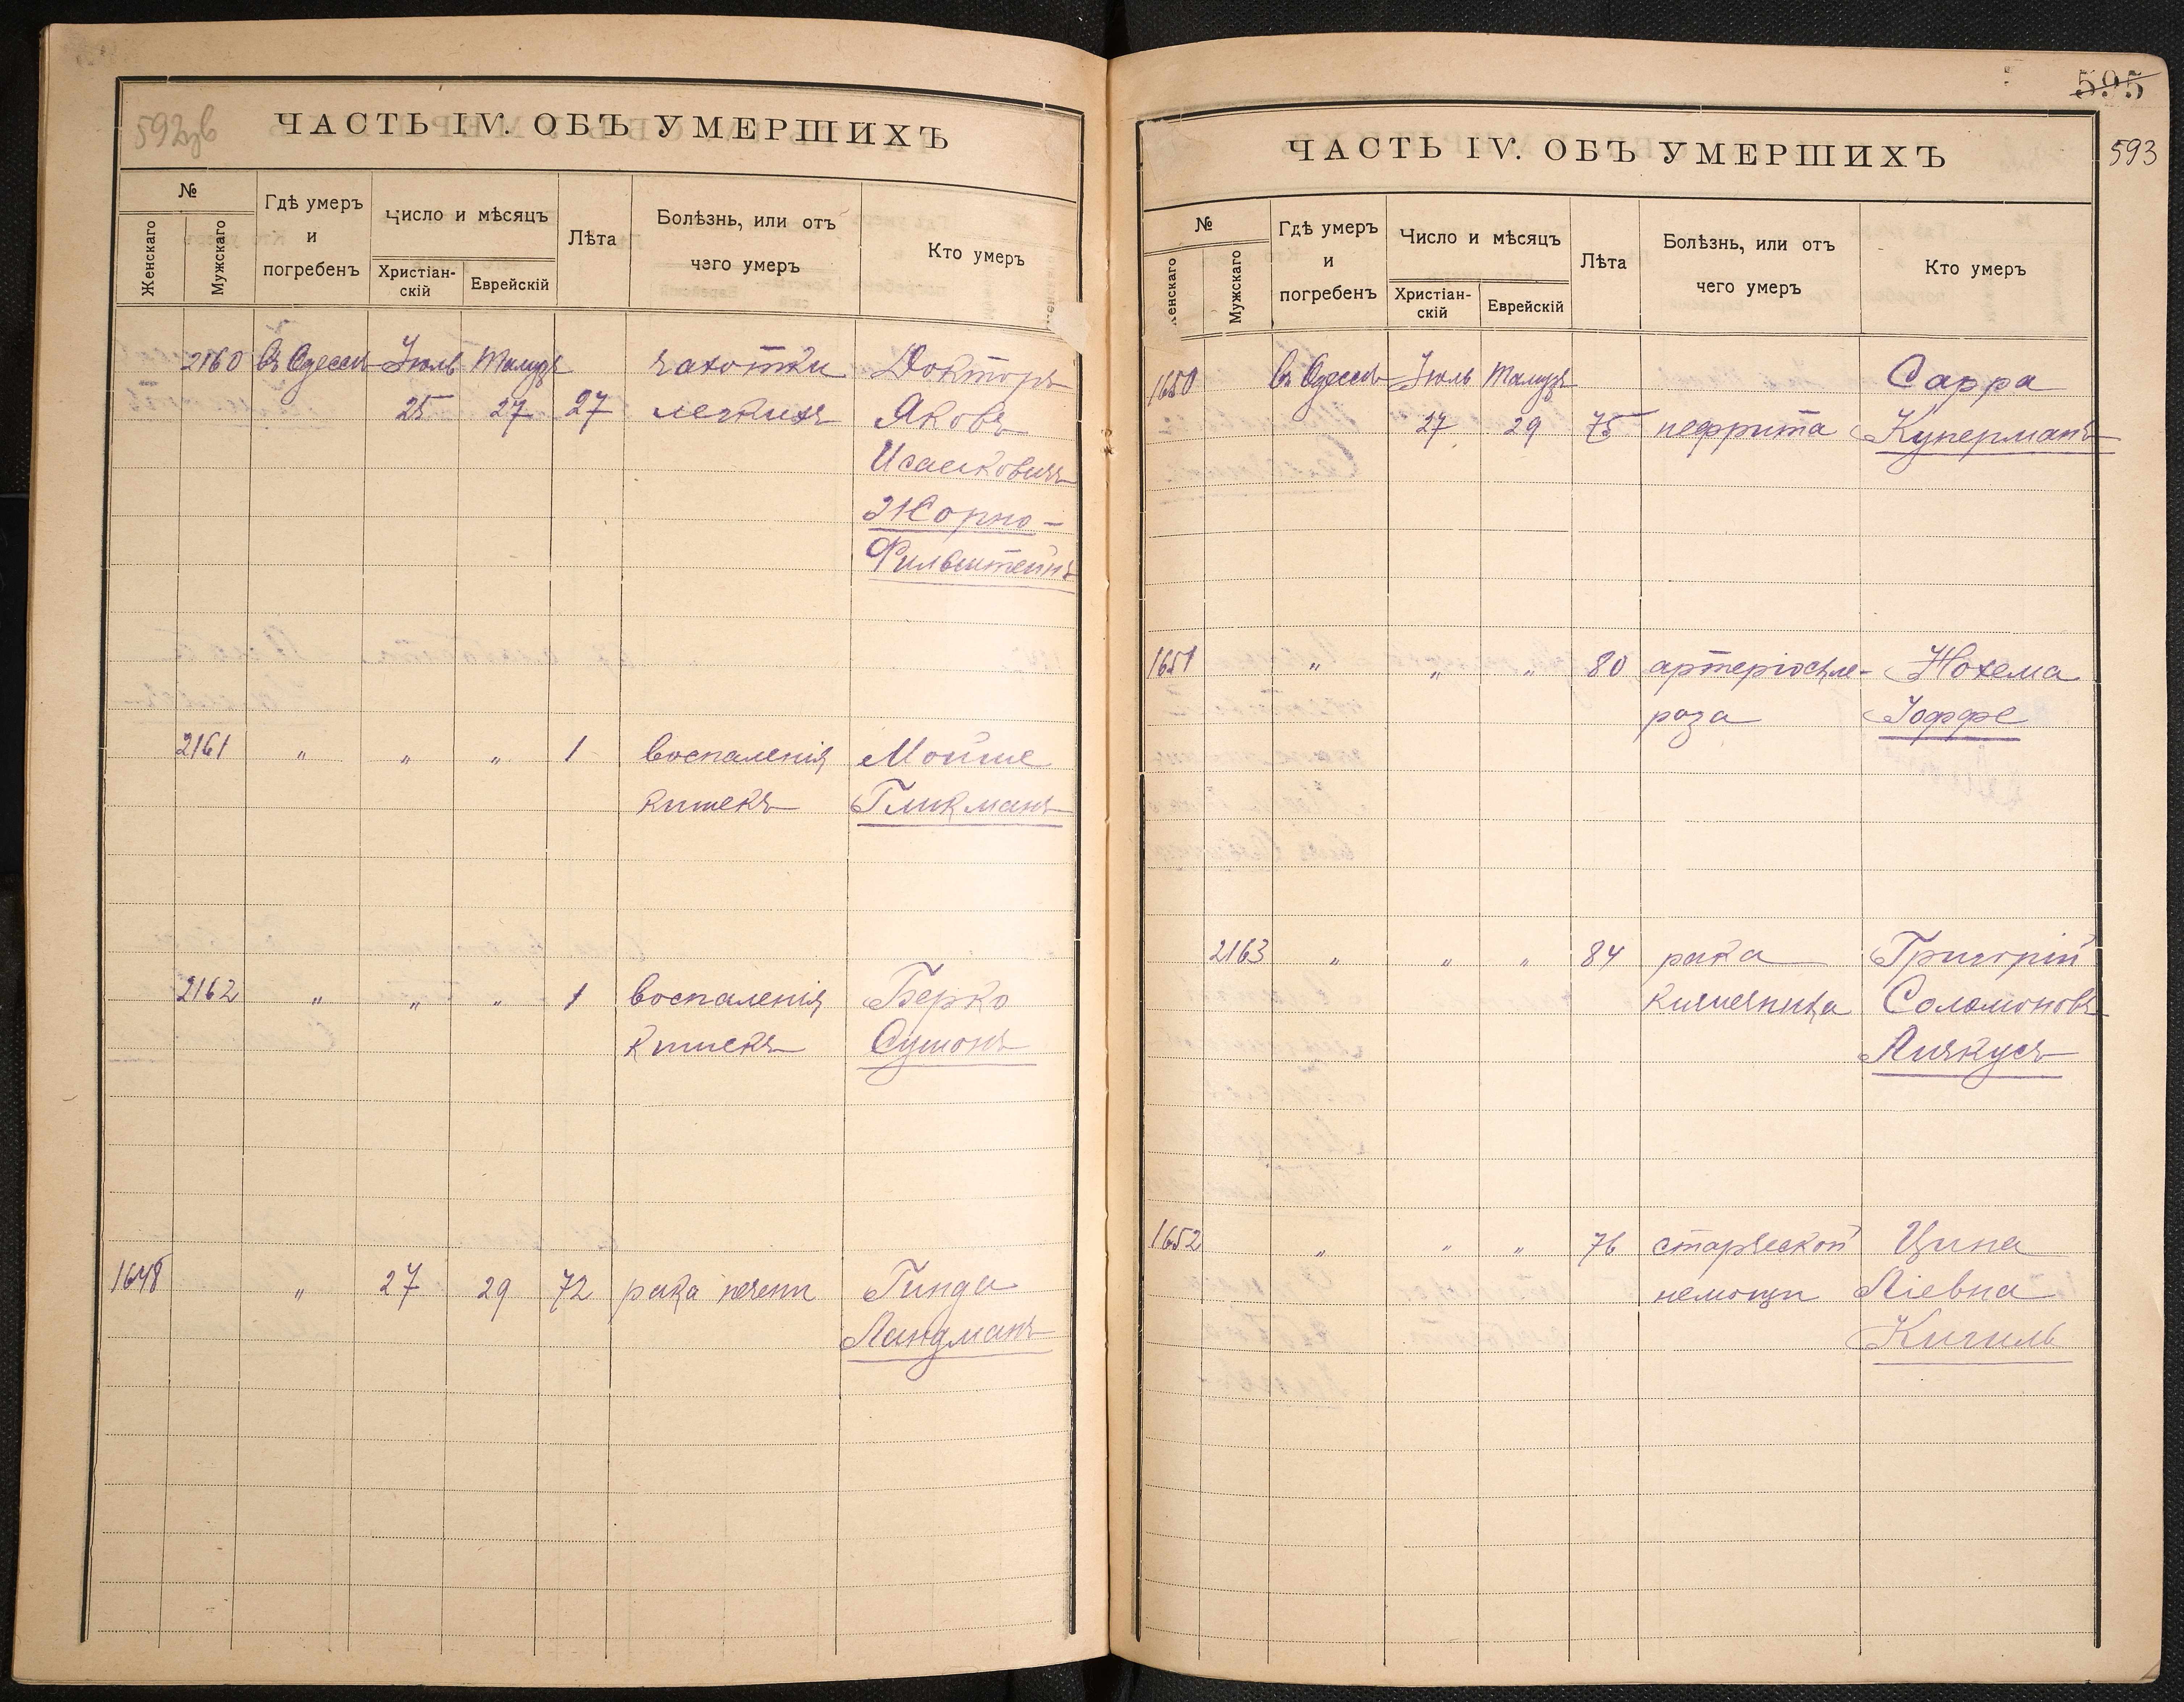 592об
ЧАСТЬ IV. ОБЪ УМЕРШИХЪ
№
Женскаго
Мужскаго
Гдѣ умеръ
и
погребенъ
Число и мѣсяцъ
Христіан-
скій
Еврейскій
Лѣта
Болѣзнь, или отъ
чего умеръ
Кто умеръ
2160 въ Одессѣ Іюль Тамузъ чахотки Докторъ
25 27 27 легкихъ Яковъ
Исааковичъ
Жорно-
Фильштейнъ
2161 " " " 1 воспаленія Мойше
кишекъ Гликманъ
2162 " " " 1 воспаленія Берко
кишекъ Сумонъ
1648 " 27 29 72 рака печени Гинда
Ландманъ
595
593
ЧАСТЬ IV. ОБЪ УМЕРШИХЪ
№
Женскаго
Мужскаго
Гдѣ умеръ
и
погребенъ
Число и мѣсяцъ
Христіан-
скій
Еврейскій
Лѣта
Болѣзнь, или отъ
чего умеръ
Кто умеръ
1650 въ Одессѣ Іюль Тамузъ Сарра
27 29 75 нефрита Куперманъ
1651 " " " 80 артеріоскле- Нохема
роза Іоффе
2163 " " " 84 рака Григорій
кишечника Соломоновъ
Анчкусъ
1652 " " " 76 старческой Цина
немощи Ліевна
Кигиль